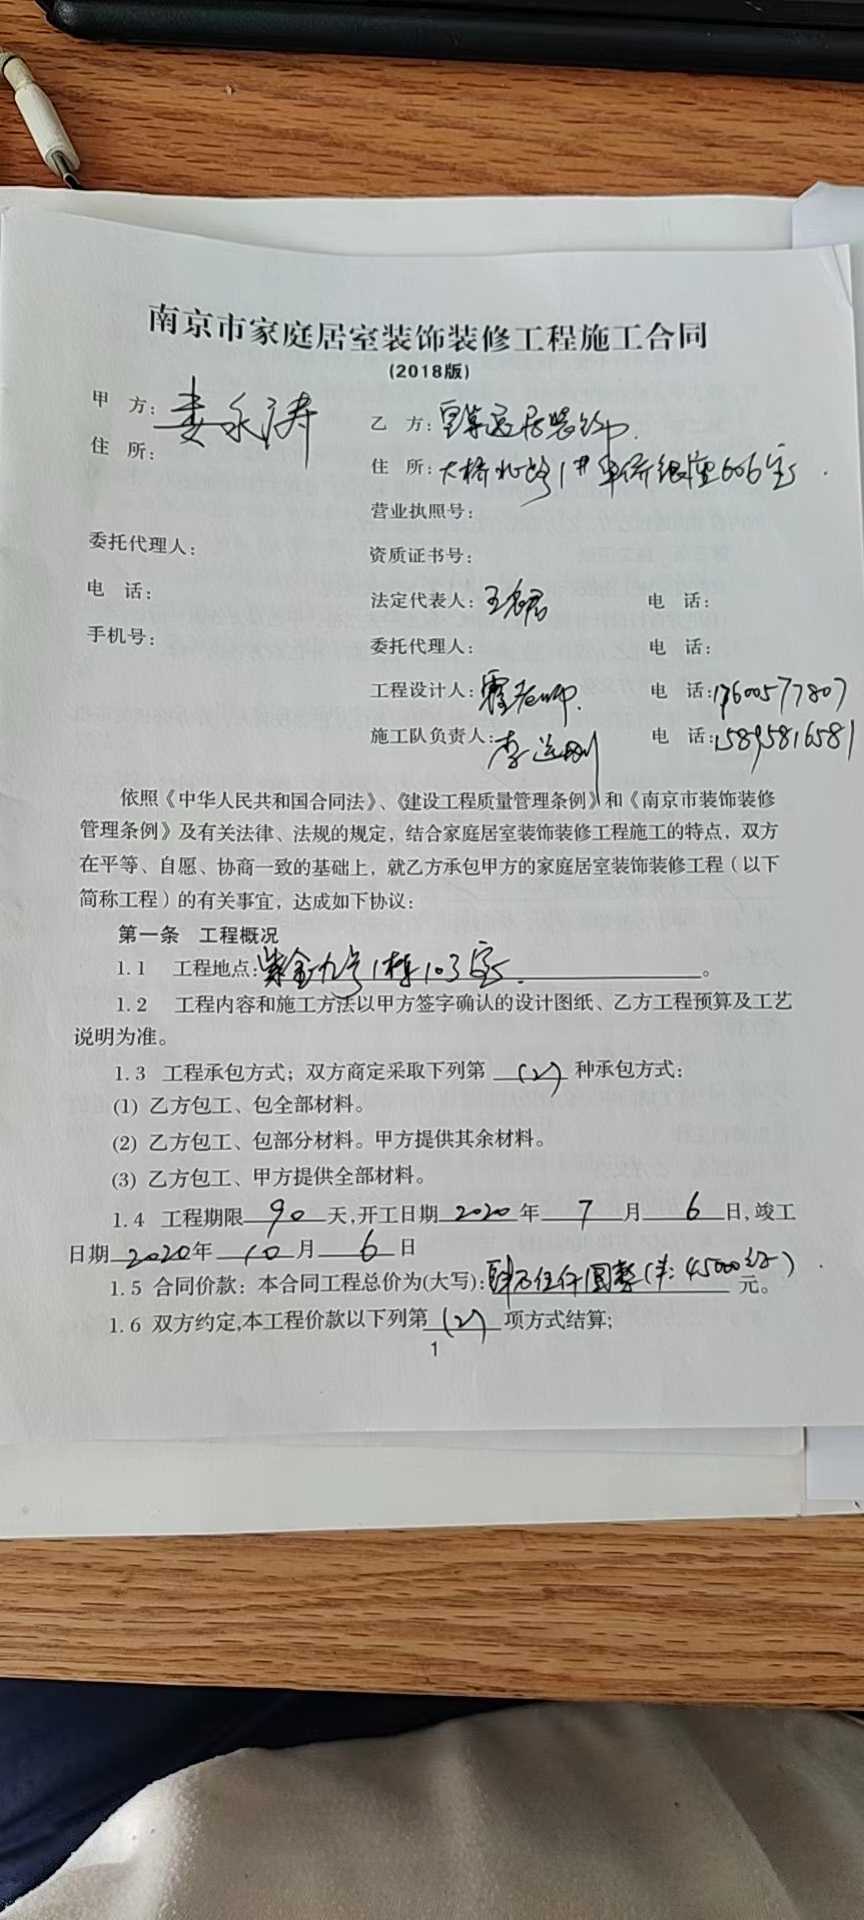 南京市家庭居室装饰装修工程施工合同
(2018版)
甲 方: 娄永涛
乙 方: 居装饰
住 所:
住 所: 大桥北路1#华侨银座606室
营业执照号:
委托代理人:
资质证书号:
电 话:
法定代表人: 王 电 话:
手机号:
委托代理人: 电 话:
工程设计人: 霍老师 电 话: 17600577807
施工队负责人: 李 电 话: 15895816581
依照《中华人民共和国合同法》、《建设工程质量管理条例》和《南京市装饰装修
管理条例》及有关法律、法规的规定，结合家庭居室装饰装修工程施工的特点，双方
在平等、自愿、协商一致的基础上，就乙方承包甲方的家庭居室装饰装修工程（以下
简称工程）的有关事宜，达成如下协议:
第一条 工程概况
1.1 工程地点: 紫金九号1栋103室。
1.2 工程内容和施工方法以甲方签字确认的设计图纸、乙方工程预算及工艺
说明为准。
1.3 工程承包方式；双方商定采取下列第 (2) 种承包方式:
(1) 乙方包工、包全部材料。
(2) 乙方包工、包部分材料。甲方提供其余材料。
(3) 乙方包工、甲方提供全部材料。
1.4 工程期限 90 天,开工日期 2020 年 7 月 6 日,竣工
日期 2020 年 10 月 6 日
1.5 合同价款: 本合同工程总价为(大写): 肆万伍仟圆整(¥: 45000元) 元。
1.6 双方约定,本工程价款以下列第 (2) 项方式结算;
1